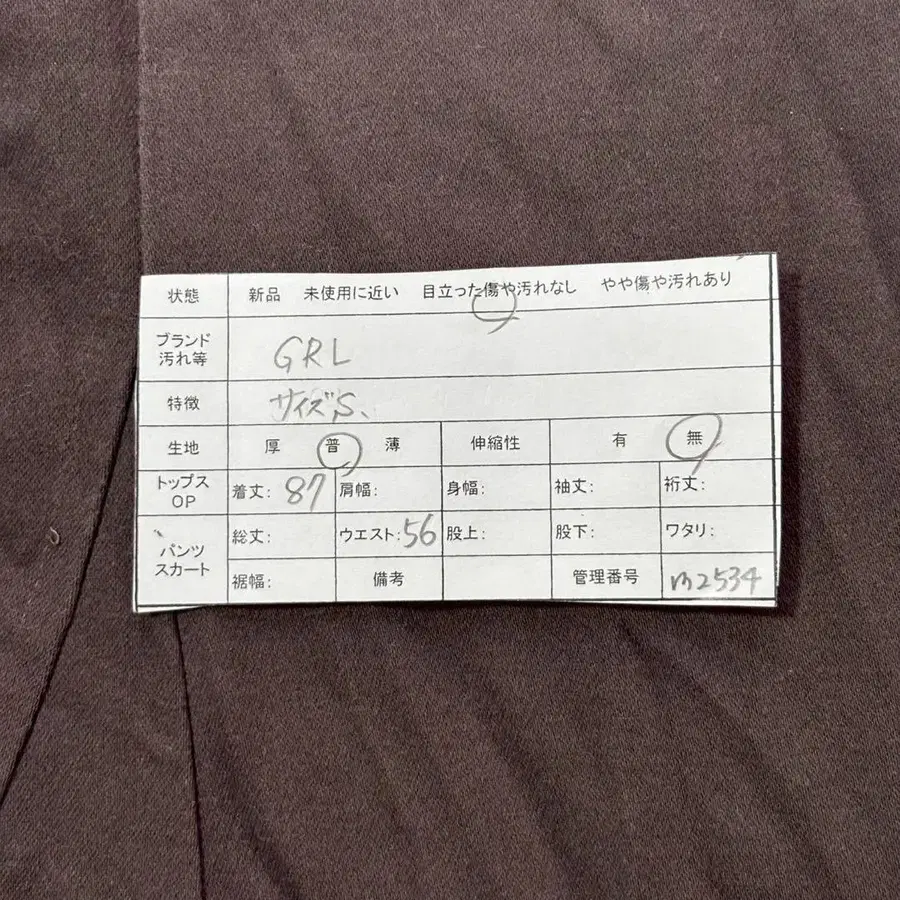 状態 新品 未使用に近い 目立った傷や汚れなし やや傷や汚れあり
ブランド
汚れ等 GRL
特徴 サイズS、
生地 厚 普 薄 伸縮性 有 無
トップス
OP 着丈: 87 肩幅: 身幅: 袖丈: 裄丈:
パンツ
スカート 総丈: ウエスト: 56 股上: 股下: ワタリ:
裾幅: 備考 管理番号 m2534